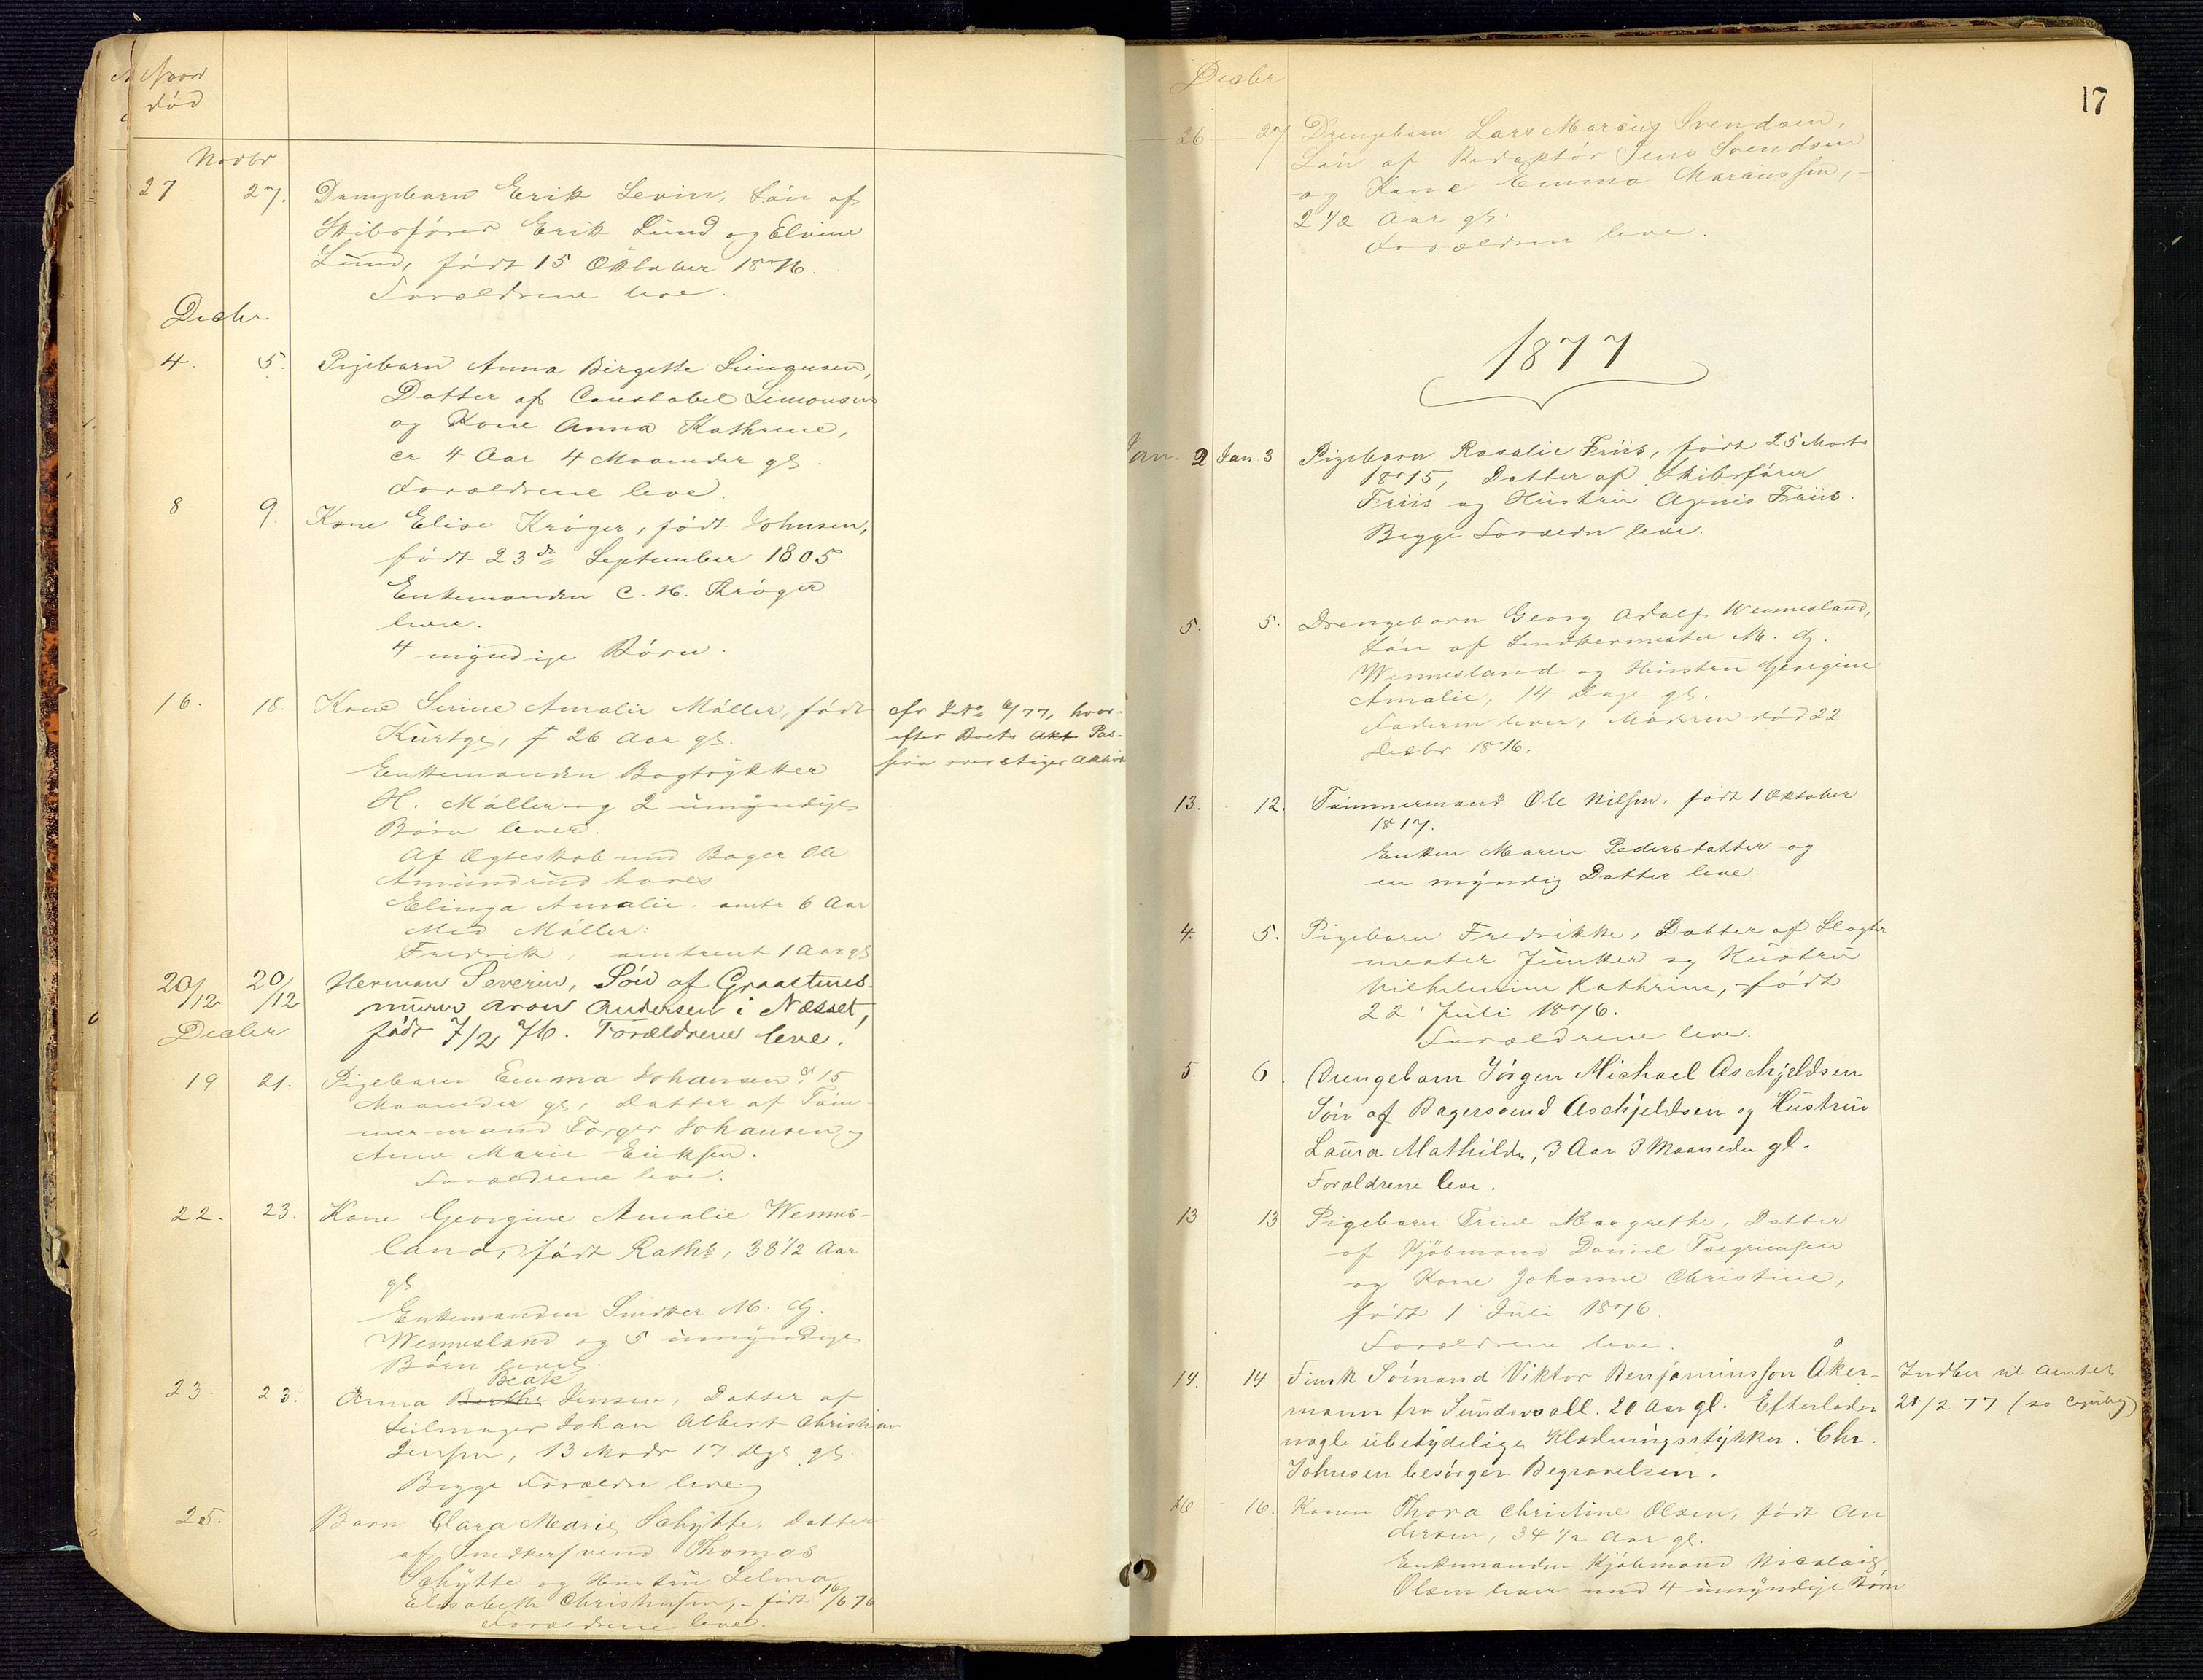 død
Novbr
27 27. Drengebarn Erik Levin, Søn af
Skibsfører Erik Lund og Elvine
Lund, født 15 Oktober 1876.
Forældrene leve.
Decbr
4. 5. Pigebarn Anna Birgette Simonsen,
Datter af Constabel Simonsen
og Kone Anna Kathrine,
er 4 Aar 4 Maaneder gl.
Forældrene leve.
8 9. Kone Elise Krøger, født Johnsen,
født 23de September 1805
Enkemanden C. H. Krøger
lever.
4 myndige Børn.
16. 18. Kone Amalie Møller, født
Kürtge, 26 Aar gl.
Enkemanden Bogtrykker
H. Møller og 2 umyndige
Børn lever.
Af Ægteskab med Bager Ole
Amundrud haves
Elinga Amalie. omtr 6 Aar
Med Møller:
Fredrik, omtrent 1 Aar gl
cfr J No 6/77, hvor-
efter Boets Akt Pas-
siva overstiger Aktiva
20/12 20/12 Herman Severin, Søn af Graastens-
murer Aron Andersen i Næsset,
født 7/2 76. Forældrene leve.
Decbr
19 21. Pigebarn Emma Johansen, 15
Maaneder gl, Datter af Tøm-
mermand Torger Johansen og
Anne Marie Eriksen.
Forældrene leve.
22. 23. Kone Georgine Amalie Wennes-
land, født Raths, 38 1/2 Aar
gl
Enkemanden Smedker M. G.
Wennesland og 5 umyndige
Børn lever.
Beate
23 23. Anna Berthe Jensen, Datter af
Seilmager Johan Albert Christian
Jensen, 13 Maadr 17 Dge gl.
Begge Forældre leve
25. Barn Clara Marie Schytte, Datter
af Snedkersvend Thomas
Schytte og Hustru Selma
Elisabeth Christensen, født 16/6 76
Forældrene leve.
17
Decbr
26. 27. Drengebarn Lars Marius Svendsen,
Søn af Redaktør Jens Svendsen
og Kone Emma Marcussen,
2 1/2 Aar gl.
Forældrene leve.
1877
Jan. 2 Jan. 3 Pigebarn Rosalie Friis, født 25 Marts
1875, Datter af Skibsfører
Friis og Hustru Agnes Friis.
Begge Forældre leve.
5. 5. Drengebarn Georg Adolf Wennesland,
Søn af Snedkermester M. G.
Wennesland og Hustru Georgine
Amalie, 14 Dage gl.
Faderen lever, Moderen død 22
Decbr 1876.
13. 12. Tømmermand Ole Nilsen. født 1 Oktober
1817.
Enken Maren Pedersdatter og
en myndig Datter leve.
4. 5. Pigebarn Fredrikke, Datter af Slagter
mester Junker og Hustru
Vilhelmine Kathrine, født
22 Juli 1876.
Forældrene leve.
5. 6. Drengebarn Jørgen Michael Aschjeldsen
Søn af Bagersvend Aschjeldsen og Hustru
Laura Mathilde, 3 Aar 3 Maaneder gl.
Forældrene leve.
13 13 Pigebarn Trine Margrethe, Datter
af Kjøbmand Daniel Torgrimsen
og Kone Johanne Christine,
født 1 Juli 1876.
Forældrene leve.
14. 14 Finsk Sømand Viktor Benjaminsson Åker-
mann fra Sundsvall. 20 Aar gl. Efterlader
nogle ubetydelige Klædningsstykker. Chr.
Johnsen besørger Begravelsen.
Indber til Amtet
21/2 77
16 16. Konen Thora Christine Olsen, født An
dersen, 34 1/2 Aar gl.
Enkemanden Kjøbmand Nicolai
Olsen lever med 4 umyndige Børn